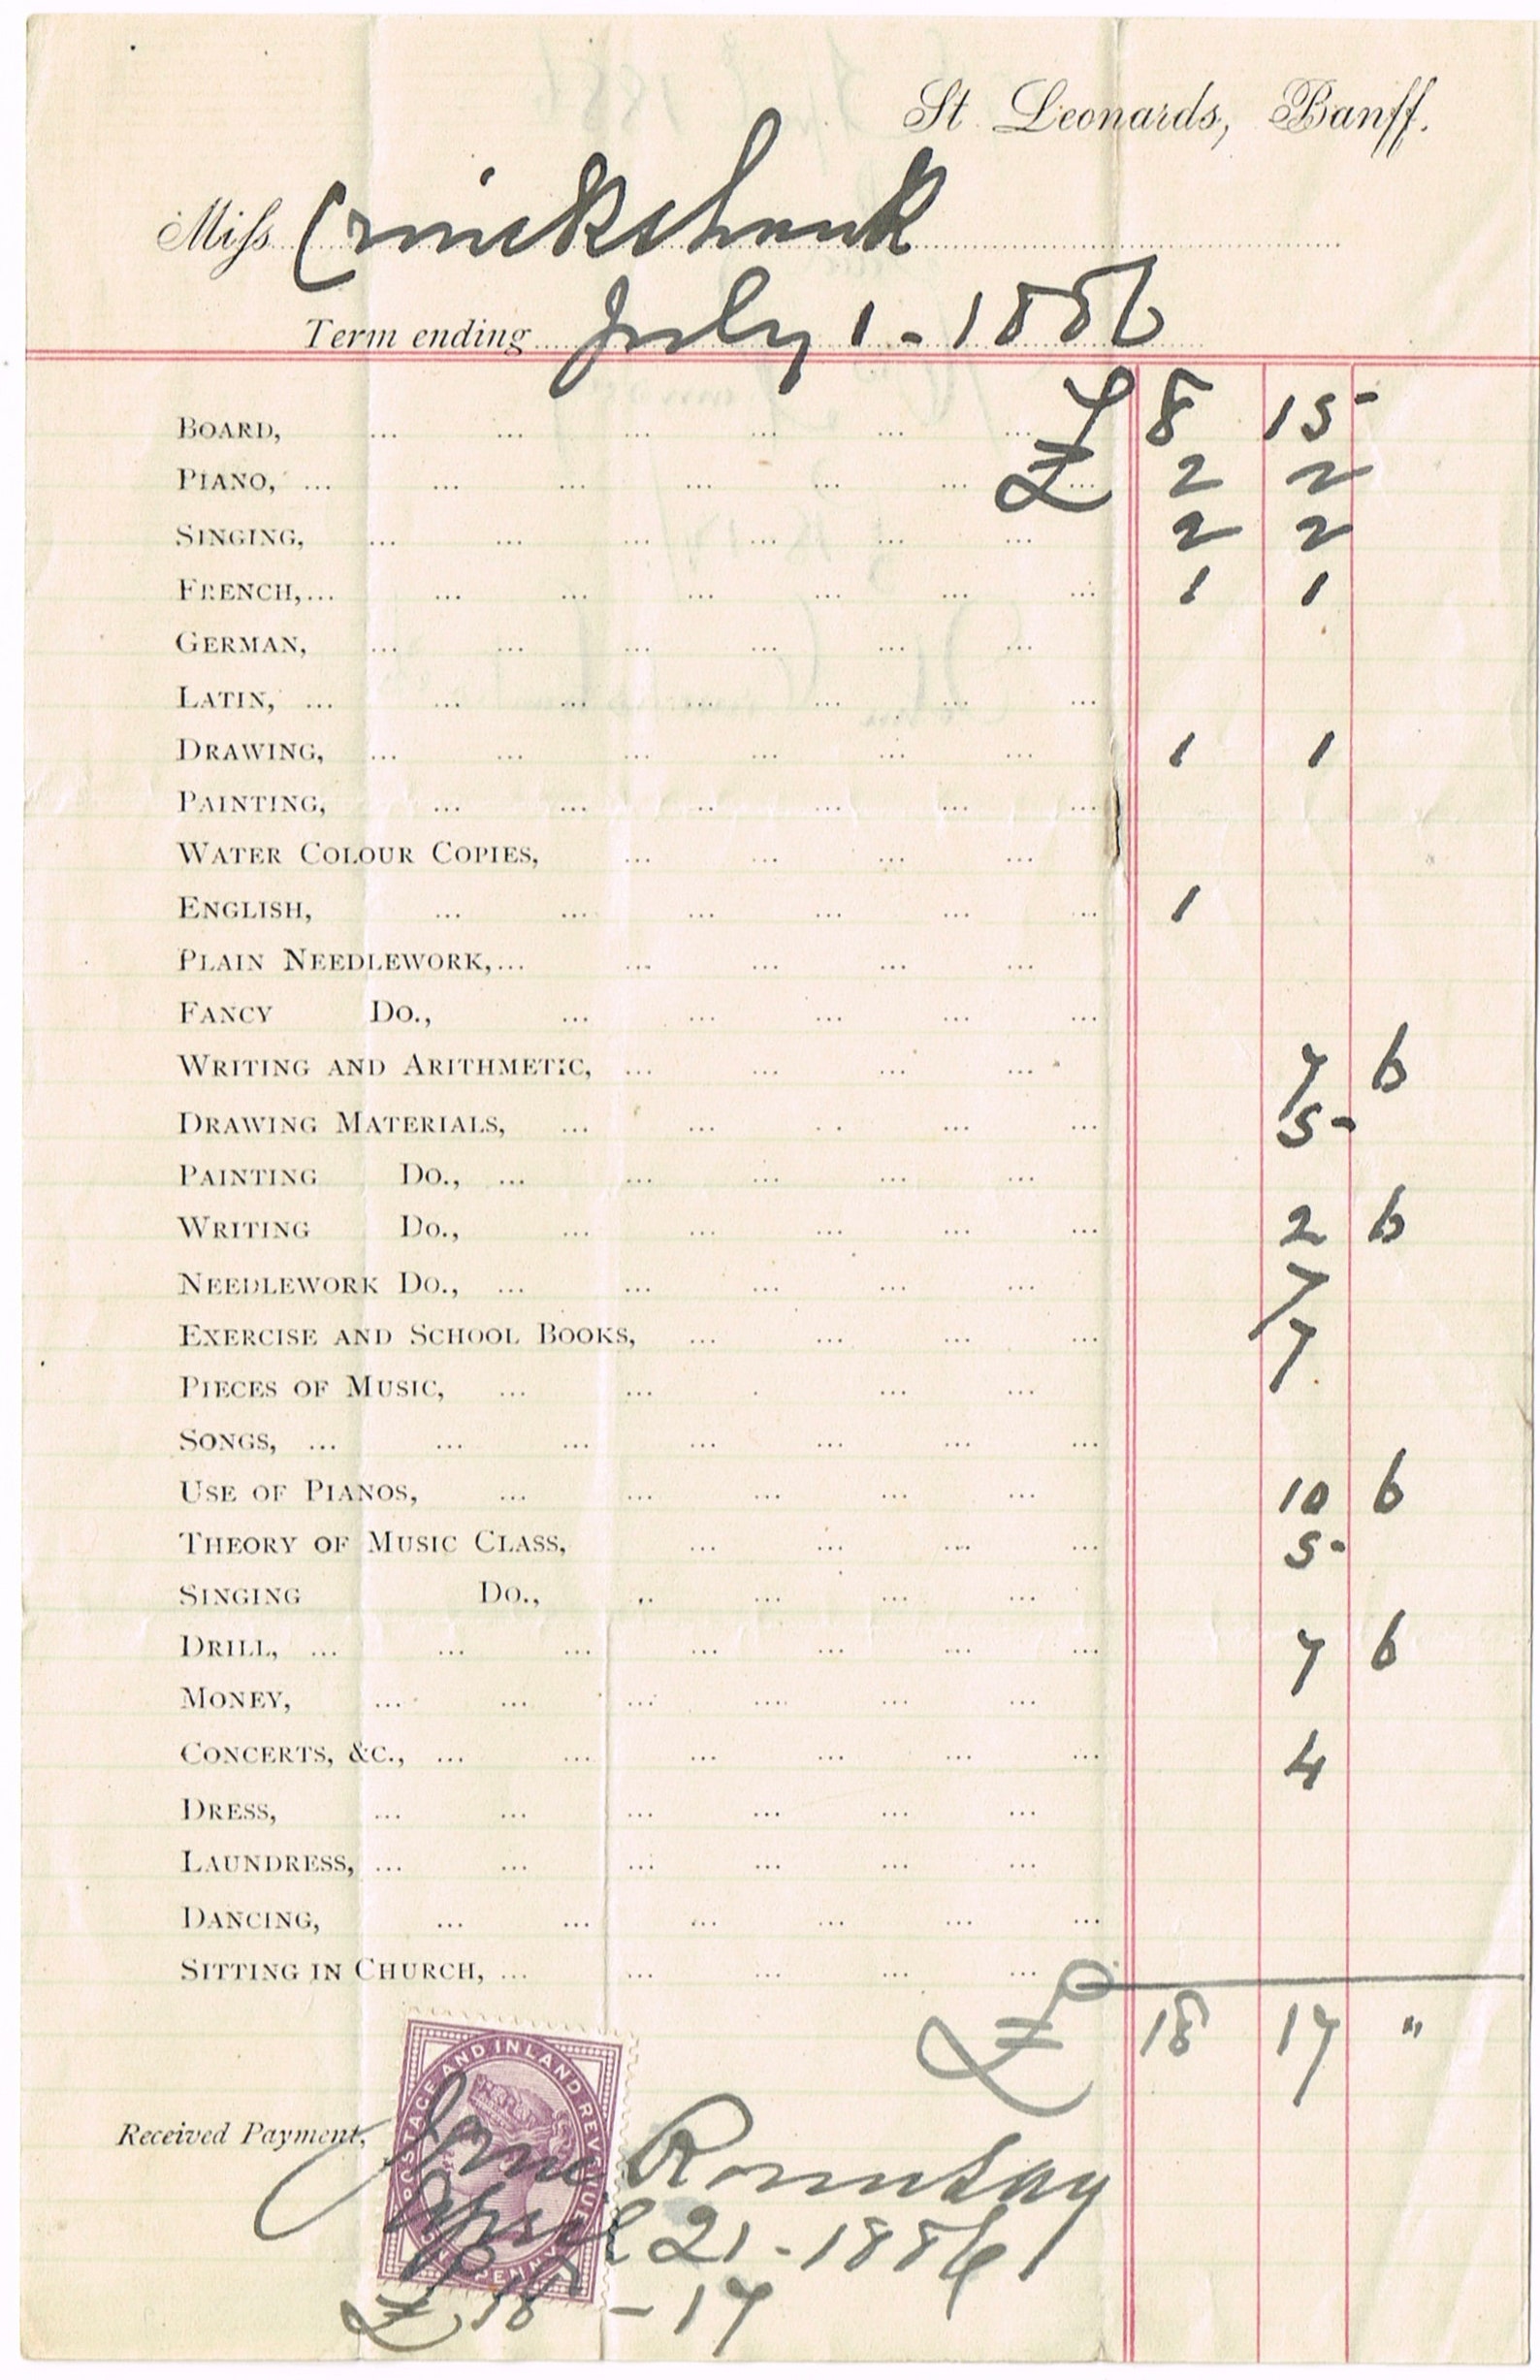 St Leonards, Banff.
Miss Cruickshank
Term ending July 1 - 1886
BOARD, ... ... ... ... ... ... £ 8 15 -
PIANO, ... ... ... ... ... ... ... 2 2
SINGING, ... ... ... ... ... ... 2 2
FRENCH, ... ... ... ... ... ... ... 1 1
GERMAN, ... ... ... ... ... ...
LATIN, ... ... ... ... ... ... ...
DRAWING, ... ... ... ... ... ... 1 1
PAINTING, ... ... ... ... ... ...
WATER COLOUR COPIES, ... ... ... ...
ENGLISH, ... ... ... ... ... ... 1
PLAIN NEEDLEWORK, ... ... ... ... ...
FANCY DO., ... ... ... ... ...
WRITING AND ARITHMETIC, ... ... ... ... 7 6
DRAWING MATERIALS, ... ... ... ... ... 5 -
PAINTING DO., ... ... ... ... ...
WRITING DO., ... ... ... ... ... 2 6
NEEDLEWORK DO., ... ... ... ... ... 7
EXERCISE AND SCHOOL BOOKS, ... ... ... ... 7
PIECES OF MUSIC, ... ... ... ... ...
SONGS, ... ... ... ... ... ... ...
USE OF PIANOS, ... ... ... ... ... 10 6
THEORY OF MUSIC CLASS, ... ... ... ... 5 -
SINGING DO., ... ... ... ...
DRILL, ... ... ... ... ... ... ... 7 6
MONEY, ... ... ... ... ... ...
CONCERTS, &C., ... ... ... ... ... ... 4
DRESS, ... ... ... ... ... ...
LAUNDRESS, ... ... ... ... ... ...
DANCING, ... ... ... ... ... ...
SITTING IN CHURCH, ... ... ... ... ...
£ 18 17 "
POSTAGE AND INLAND REVENUE
ONE PENNY
Received Payment, Jane Ramsay
April 21 - 1886
£18 - 17